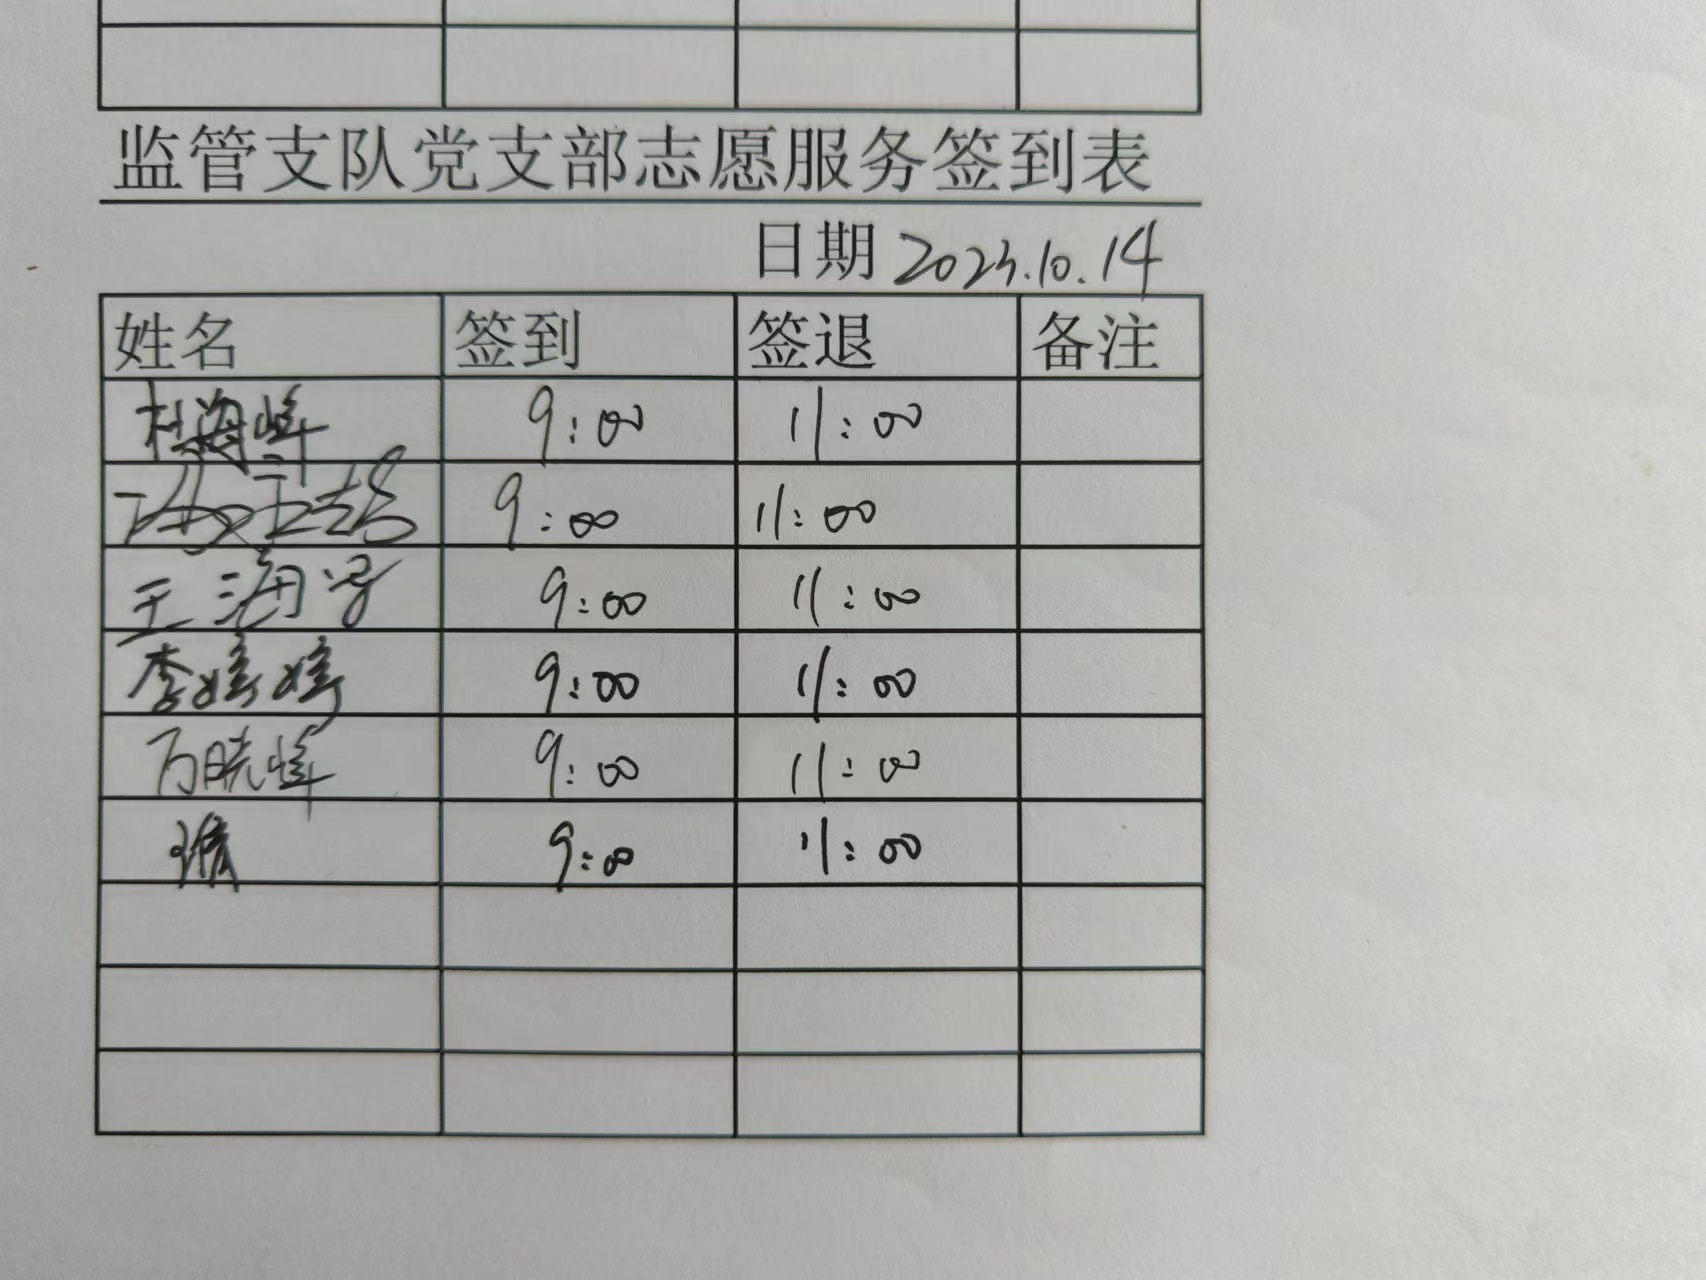 监管支队党支部志愿服务签到表
日期 2023.10.14
姓名 签到 签退 备注
杜海峰 9:00 11:00
9:00 11:00
王海 9:00 11:00
李婷婷 9:00 11:00
万晓峰 9:00 11:00
9:00 11:00